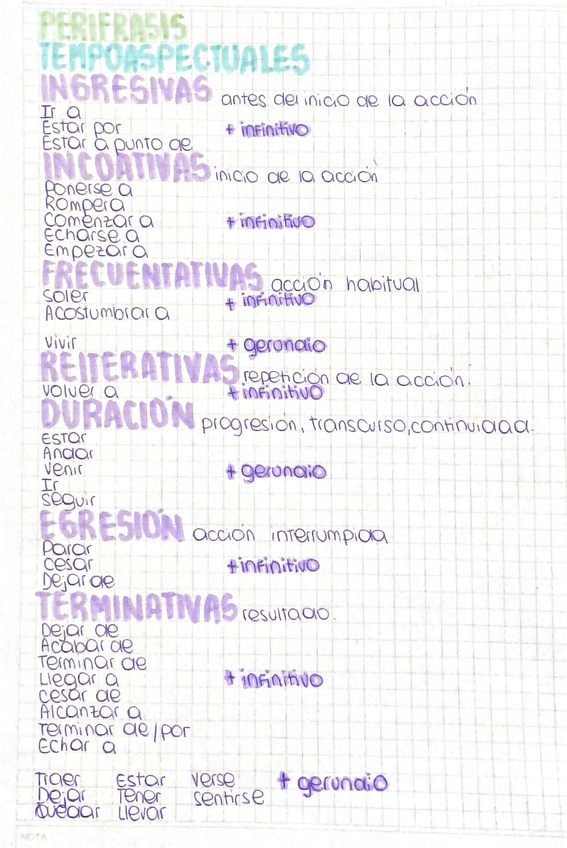 PERIFRASIS
TEMPOASPECTUALES
INGRESIVAS antes del inicio de la acción
Ir a
Estar por + infinitivo
Estar a punto de
INCOATIVAS inicio de la acción
Ponerse a
Romper a
Comenzar a + infinitivo
Echarse a
Empezar a
FRECUENTATIVAS acción habitual
soler + infinitivo
Acostumbrar a
vivir + gerundio
REITERATIVAS repetición de la acción.
volver a + infinitivo
DURACIÓN progresión, transcurso, continuidad.
Estar
Andar
venir + gerundio
Ir
seguir
EGRESIÓN acción interrumpida
Parar
cesar + infinitivo
Dejar de
TERMINATIVAS resultado.
Dejar de
Acabar de
Terminar de
Llegar a + infinitivo
cesar de
Alcanzar a
Terminar de/por
Echar a
Traer Estar verse + gerundio
Dejar Tener sentirse
Quedar Llevar
NOTA